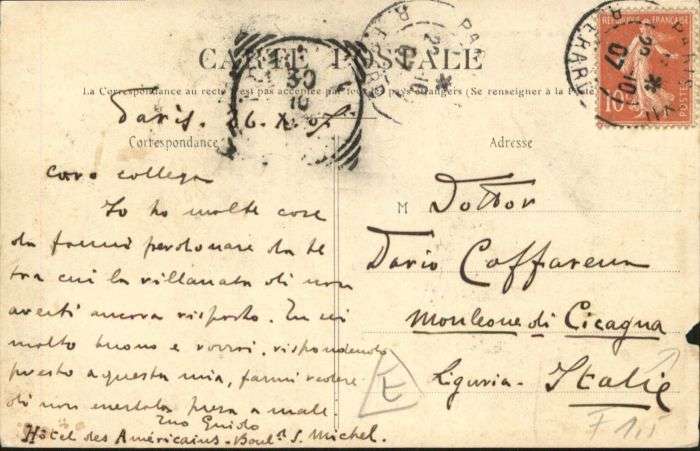 CARTE POSTALE
La Correspondance au recto n'est pas acceptée par tous les pays étrangers (Se renseigner à la Poste
Paris. 26. X. 07
Correspondance
caro collega
Io ho molte cose
da farmi perdonare da te
tra cui la villanata di non
averti ancora risposto. Tu sei
molto buono e vorrai, rispondendo
presto a questa mia, farmi vedere
di non essertela presa a male
Tuo Guido
Hôtel des Américains - Boul.d S. Michel.
Adresse
M Dottor
Dario Caffarena
Monleone di Cicagna
Liguria - Italie
REPUBLIQUE FRANÇAISE
10
POSTES
30
10
10
07